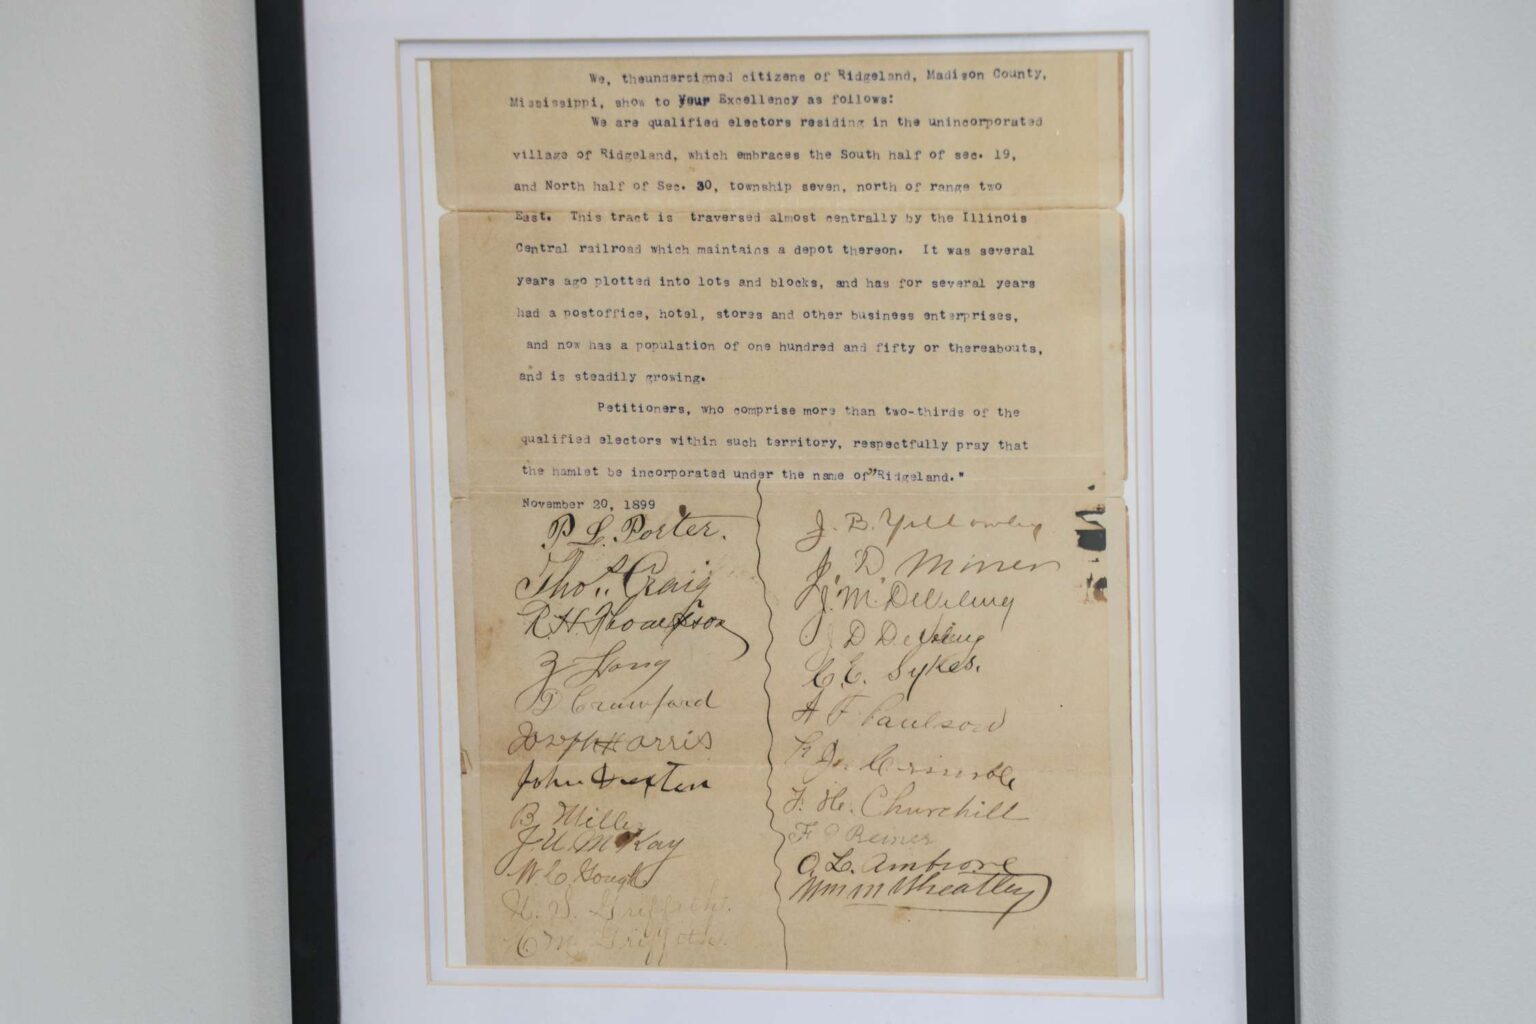 We, theundersigned citizens of Ridgeland, Madison County,
Mississippi, show to Your Excellency as follows:
We are qualified electors residing in the unincorporated
village of Ridgeland, which embraces the South half of sec. 19,
and North half of Sec. 30, township seven, north of range two
East. This tract is traversed almost centrally by the Illinois
Central railroad which maintains a depot thereon. It was several
years ago plotted into lots and blocks, and has for several years
had a postoffice, hotel, stores and other business enterprises,
and now has a population of one hundred and fifty or thereabouts,
and is steadily growing.
Petitioners, who comprise more than two-thirds of the
qualified electors within such territory, respectfully pray that
the hamlet be incorporated under the name of "Ridgeland."
November 20, 1899
P. L. Porter.
Thos. Craig
R H Thompson
Z Long
D Crawford
Joseph Harris
John
B. Miller
J. U. McKay
W. C. Gough
H. S. Griffith.
H. M. Griffith.
J. B. Yellowley
J. D. Miner
J. M. DeVelling
J D DeVelling
C. E. Sykes.
A F Paulson
F. H. Churchill
F Reiner
O. L. Ambrose
Wm M Wheatley